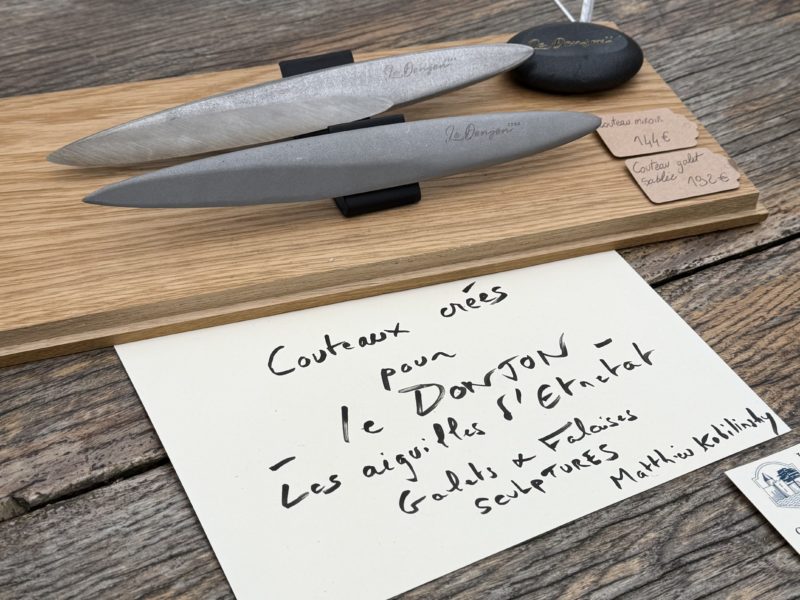 Le Donjon
Le Donjon
Le Donjon
couteau miroir
144€
Couteau galet
sablé 192€
Couteaux créés
pour
le DONJON
Les aiguilles d'Etretat
Galets & Falaises
SCULPTURES
Matthieu Kobilinsky